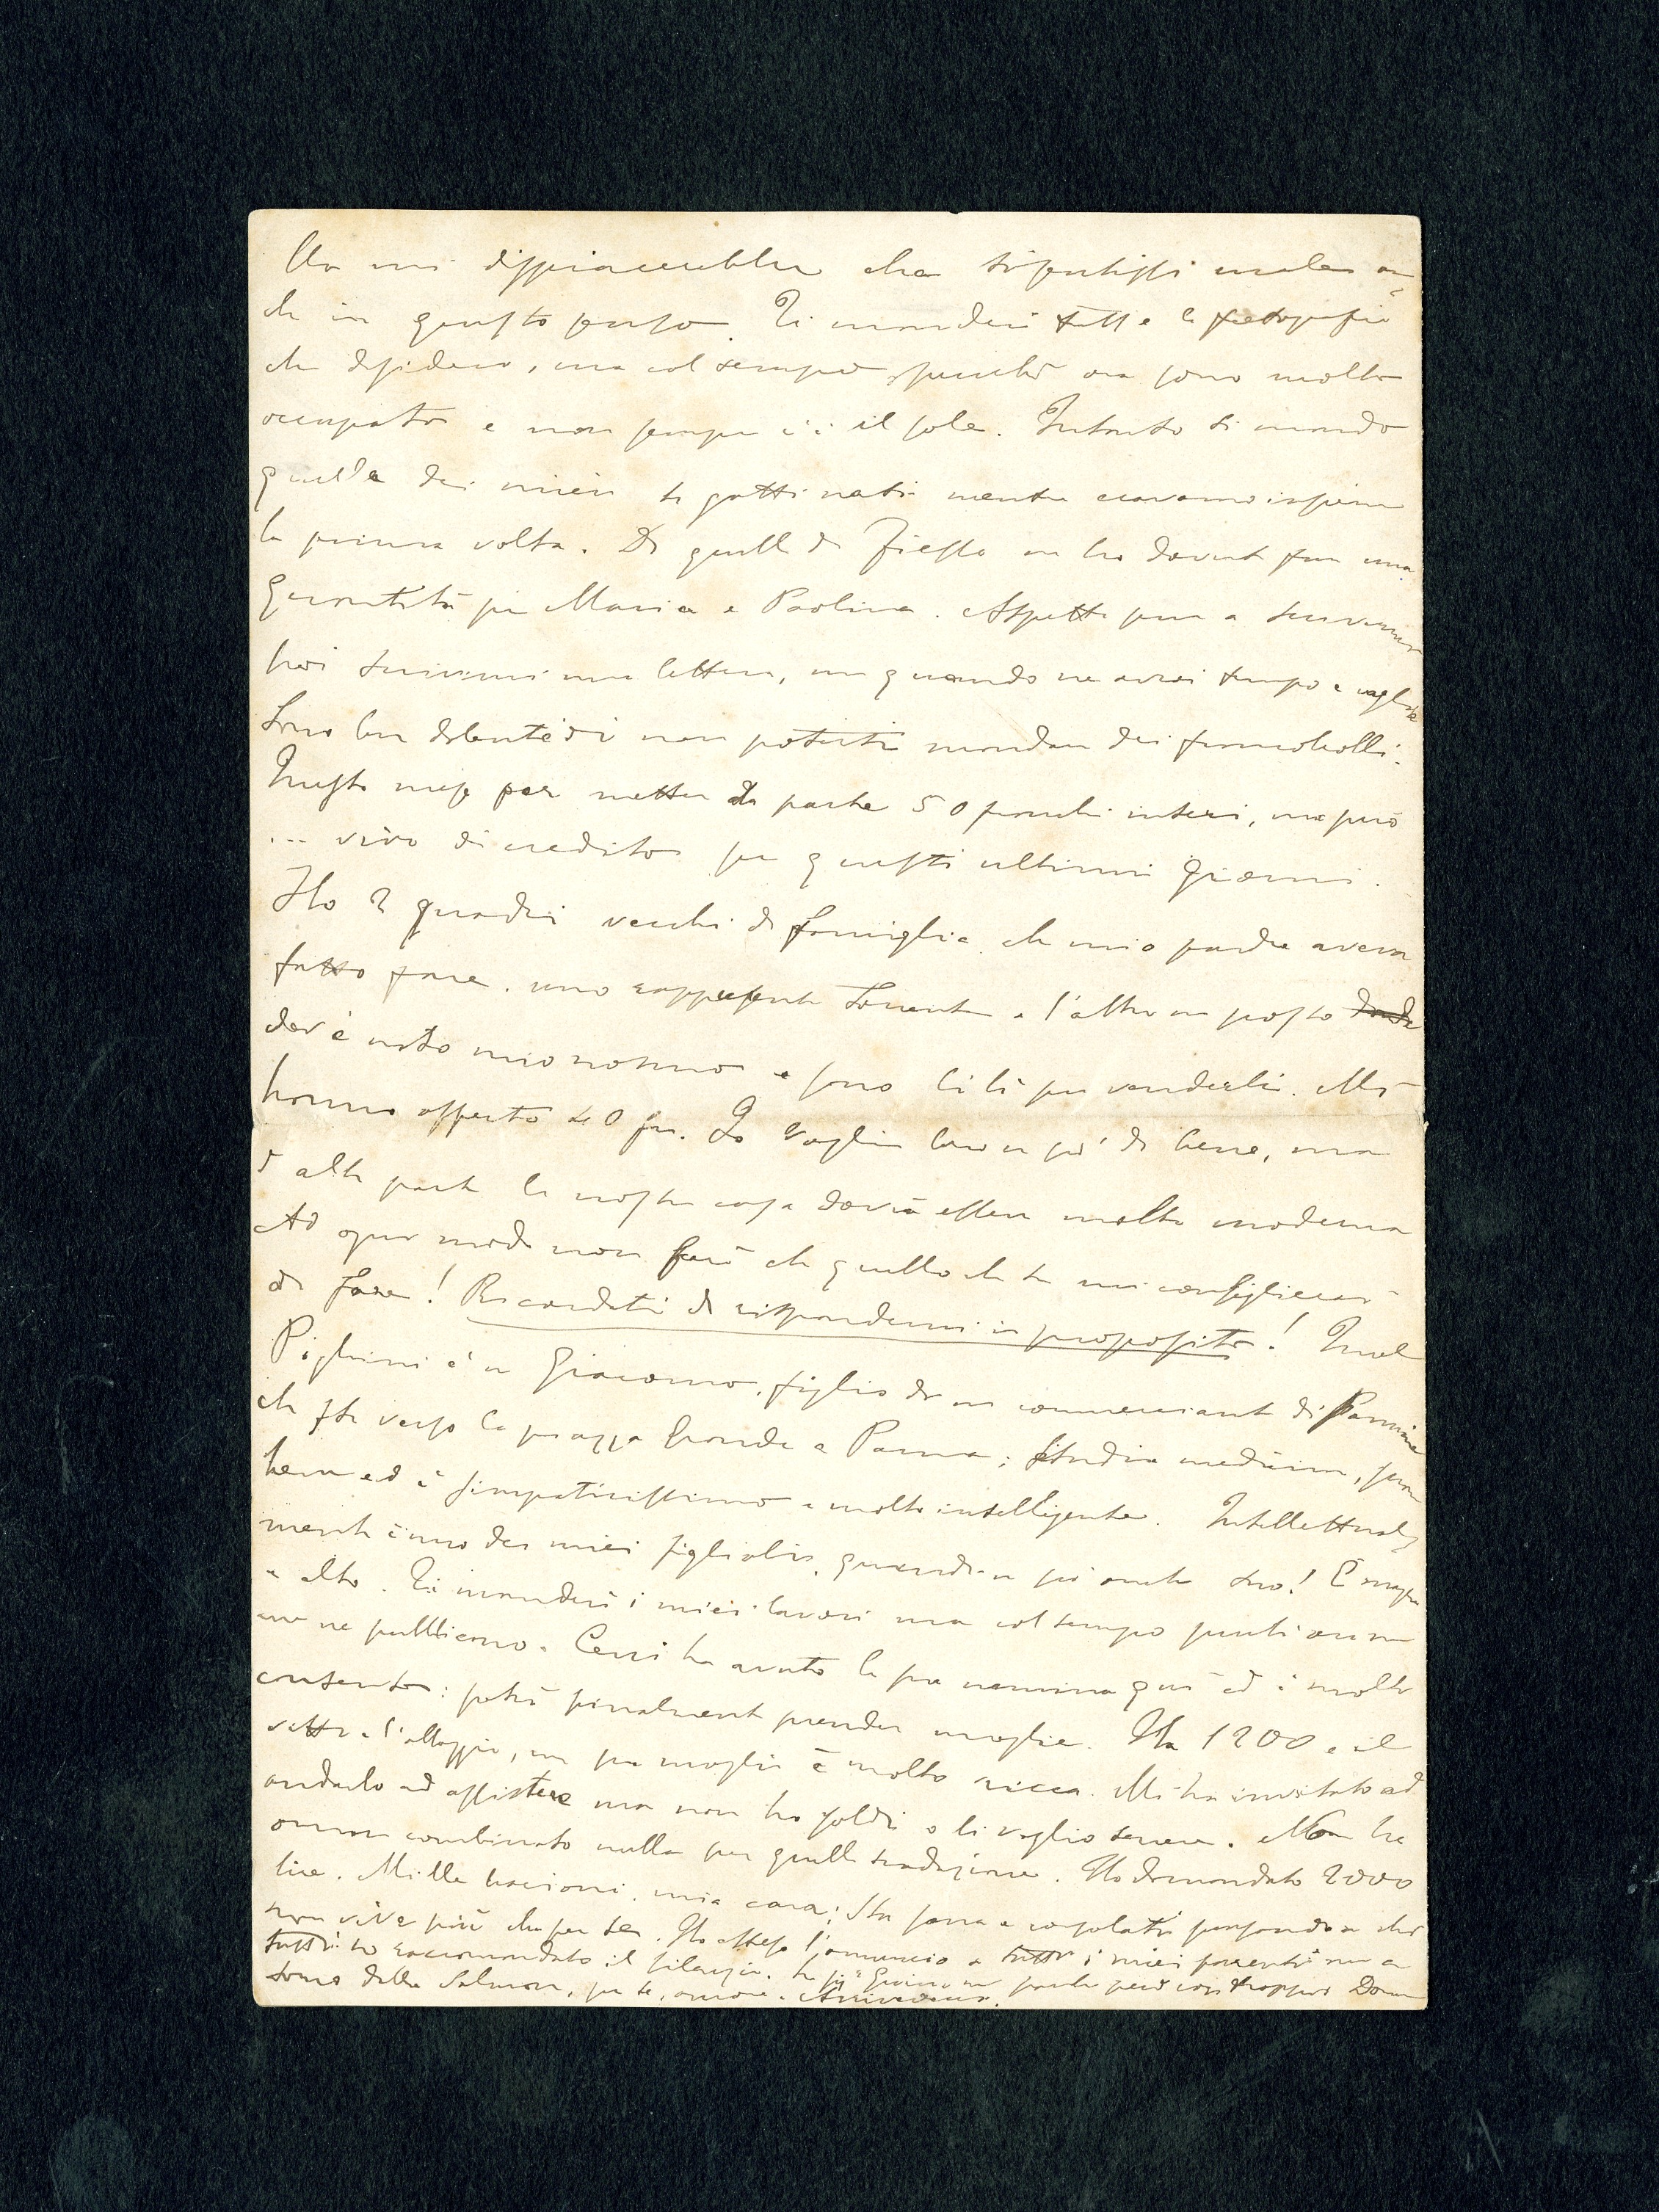 Ma mi dispiacerebbe che ti sentissi male an-
che in questo senso. Ti manderò tutte le fotografie
che desidero, ma col tempo perché ora sono molto
occupato e non sempre c'è il sole. Intanto ti mando
quella dei miei gatti nati mentre eravamo insieme
la prima volta. Di quelle di Fiesso ne ho dovute fare una
quantità per Maria e Paolina. Aspetta pure a scrivermi
poi scrivimi una lettera, ma quando ne avrai tempo e voglia
Sono ben dolente di non poterti mandare dei francobolli.
Questo mese per mettere da parte 50 franchi interi, ma però
... vivo di credito per questi ultimi giorni.
Ho 2 quadri vecchi di famiglia che mio padre aveva
fatto fare. uno rappresenta Sorrento e l'altro un posto
dov'è nato mio nonno e sono lì lì per venderli. Mi
hanno offerto 40 fr. Io voglio loro un po' di bene, ma
d'altra parte la nostra casa dovrà essere molto moderna
Ad ogni modo non farò che quello che tu mi consiglierai
di fare! Ricordati di rispondermi in proposito! Quel
Pighini è un Giacomo, figlio di un commerciante di
che sta verso la piazza Grande a Parma; Studia medicina,
bene ed è simpaticissimo e molto intelligente. Intellettual-
mente è uno dei miei figlioli, quindi un po' anche tuo! È magro
e alto. Ti manderò i miei lavori ma col tempo perché ora non
ne pubblicano. Ceni ha avuto la sua nomina qui ed è molto
contento: potrà finalmente prender moglie. Ha 1200 e il
vitto e l'alloggio, ma sua moglie è molto ricca. Mi ha invitato ad
andarlo ad assistere ma non ho soldi o li voglio tenere. Non ho
ancora combinato nulla per quella traduzione. Ho domandato 2000
lire. Mille bacioni, mia cara; Sta sana e consolati pensando a chi
non vive più che per te. Ho esteso l'annuncio a tutti i miei parenti ma a
tutti ho raccomandato il silenzio. però con troppo
delle per te, amore.